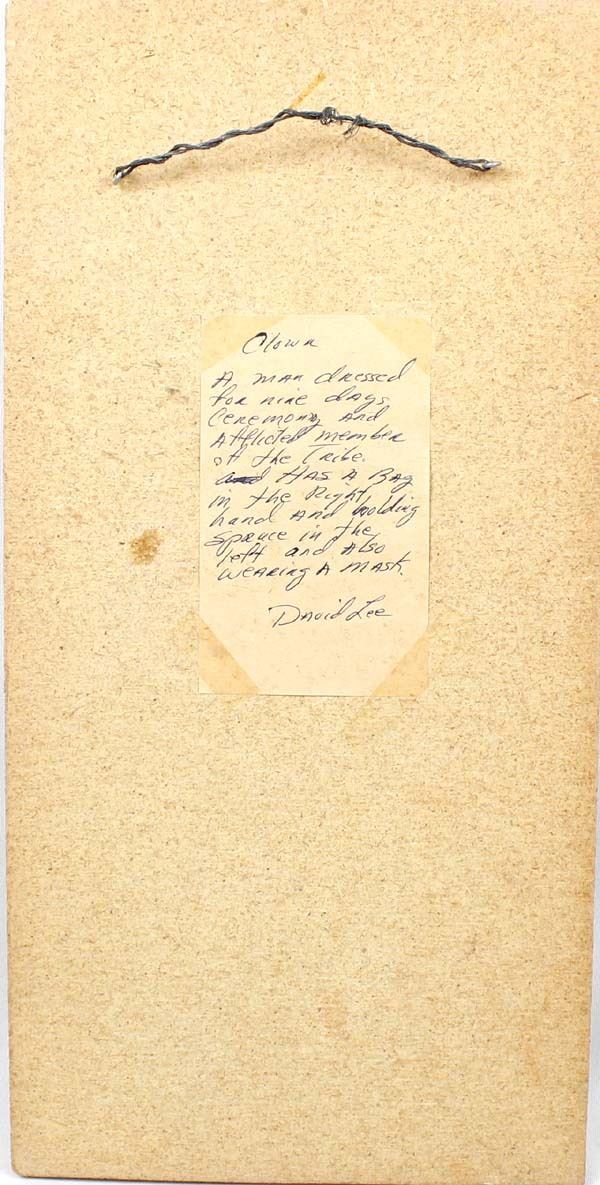 Clown
A man dressed
for nine days
Ceremony and
Afflicted member
off the Tribe.
and HAS A Bag
in the Right
hand and holding
Spruce in the
left and Also
wearing A mask.
David Lee